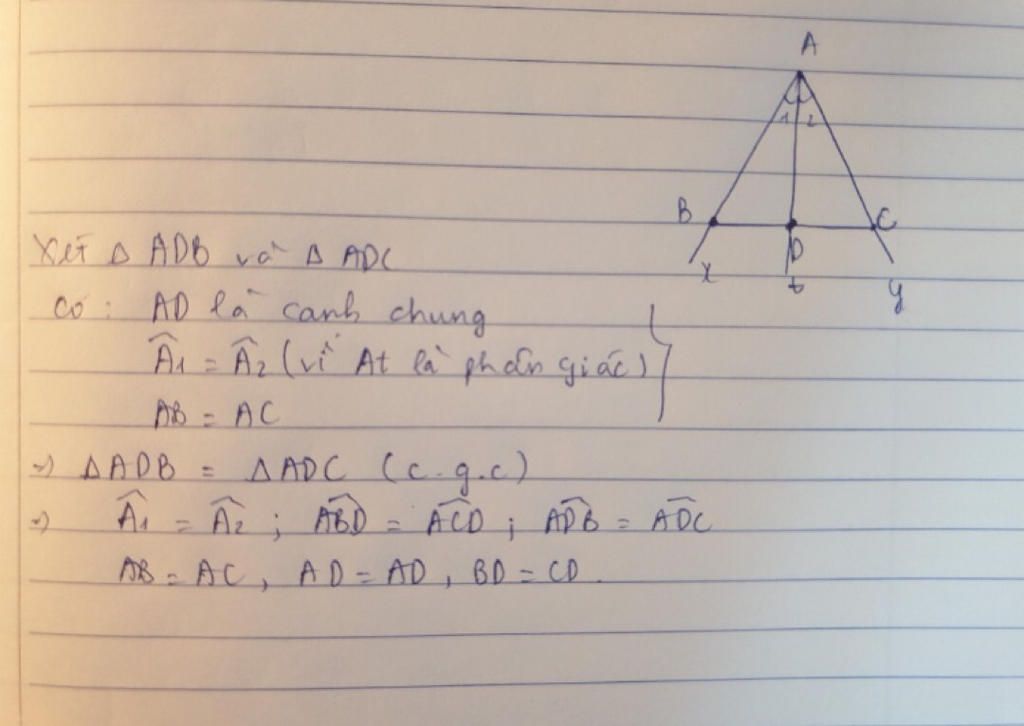 A
1 2
B
D
C
x
t
y
Xét Δ ADB và Δ ADC
có : AD là cạnh chung
Â1 = Â2 (vì At là phân giác)
AB = AC
=> ΔADB = ΔADC (c.g.c)
=> Â1 = Â2 ; \widehat{ABD} = \widehat{ACD} ; \widehat{ADB} = \widehat{ADC}
AB = AC, AD = AD, BD = CD.